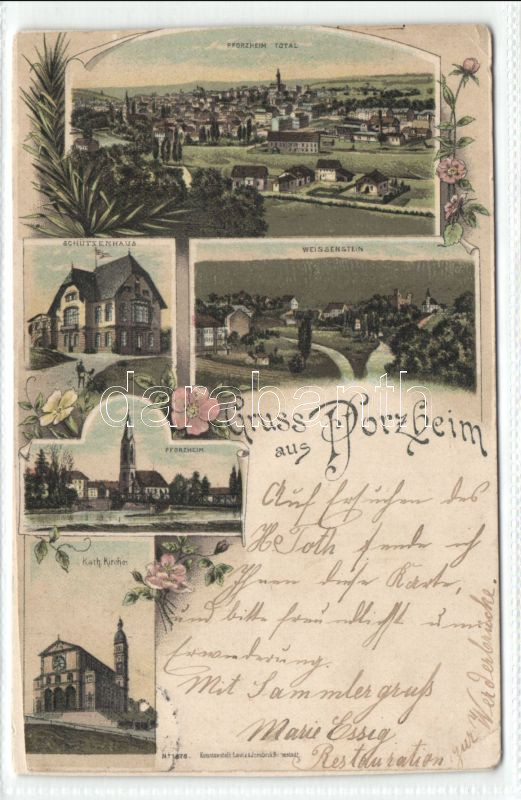 PFORZHEIM TOTAL
SCHÜTZENHAUS
WEISSENSTEIN
darabanth
Gruss
aus
Pforzheim
PFORZHEIM
Kath. Kirche
Auf Ersuchen des
H Toth sende ich
Ihnen diese Karte,
und bitte freundlichst um
Erwiederung.
Mit Sammlergruß
Marie Essig
Restauration
zur Werderbrücke.
No 1878.
Kunstanstalt